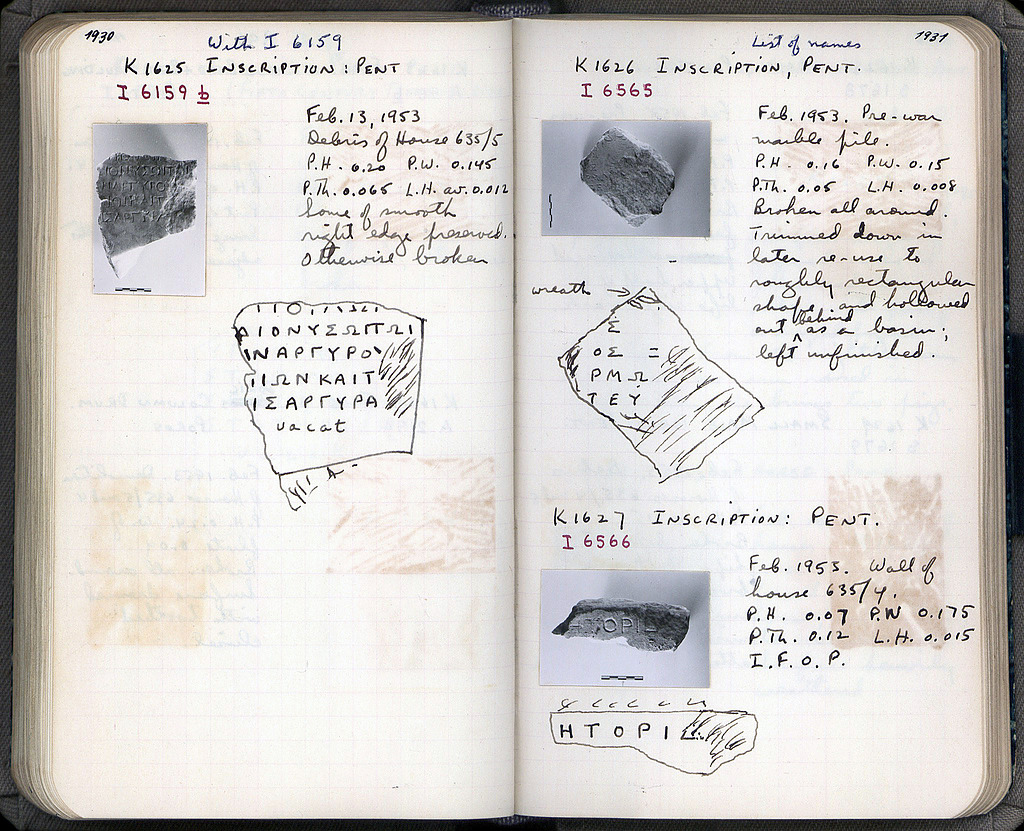 1930
With I 6159
K 1625 INSCRIPTION: PENT
I 6159 b
Feb. 13, 1953
Debris of House 635/5
P.H. 0.20 P.W. 0.145
P.Th. 0.065 L.H. av. 0.012
Some of smooth
right edge preserved.
Otherwise broken
ΙΟΝΥΣΩΙΤΩΙ
ΙΝΑΡΓΥΡΟ
ΙΩΝΚΑΙΤ
ΙΣΑΡΓΥΡΑ
vacat
1931
List of names
K 1626 INSCRIPTION, PENT.
I 6565
Feb. 1953. Pre-war
marble pile.
P.H. 0.16 P.W. 0.15
P.Th. 0.05 L.H. 0.008
Broken all around.
Trimmed down in
later re-use to
roughly rectangular
shape, and hollowed
out behind as a basin;
left unfinished.
wreath →
Σ
ΟΣ =
ΡΜΩ
ΤΕΥ
K 1627 INSCRIPTION: PENT.
I 6566
Feb. 1953. Wall of
house 635/4.
P.H. 0.07 P.W 0.175
P.Th. 0.12 L.H. 0.015
I.F.O.P.
ΗΤΟΡΙΣ